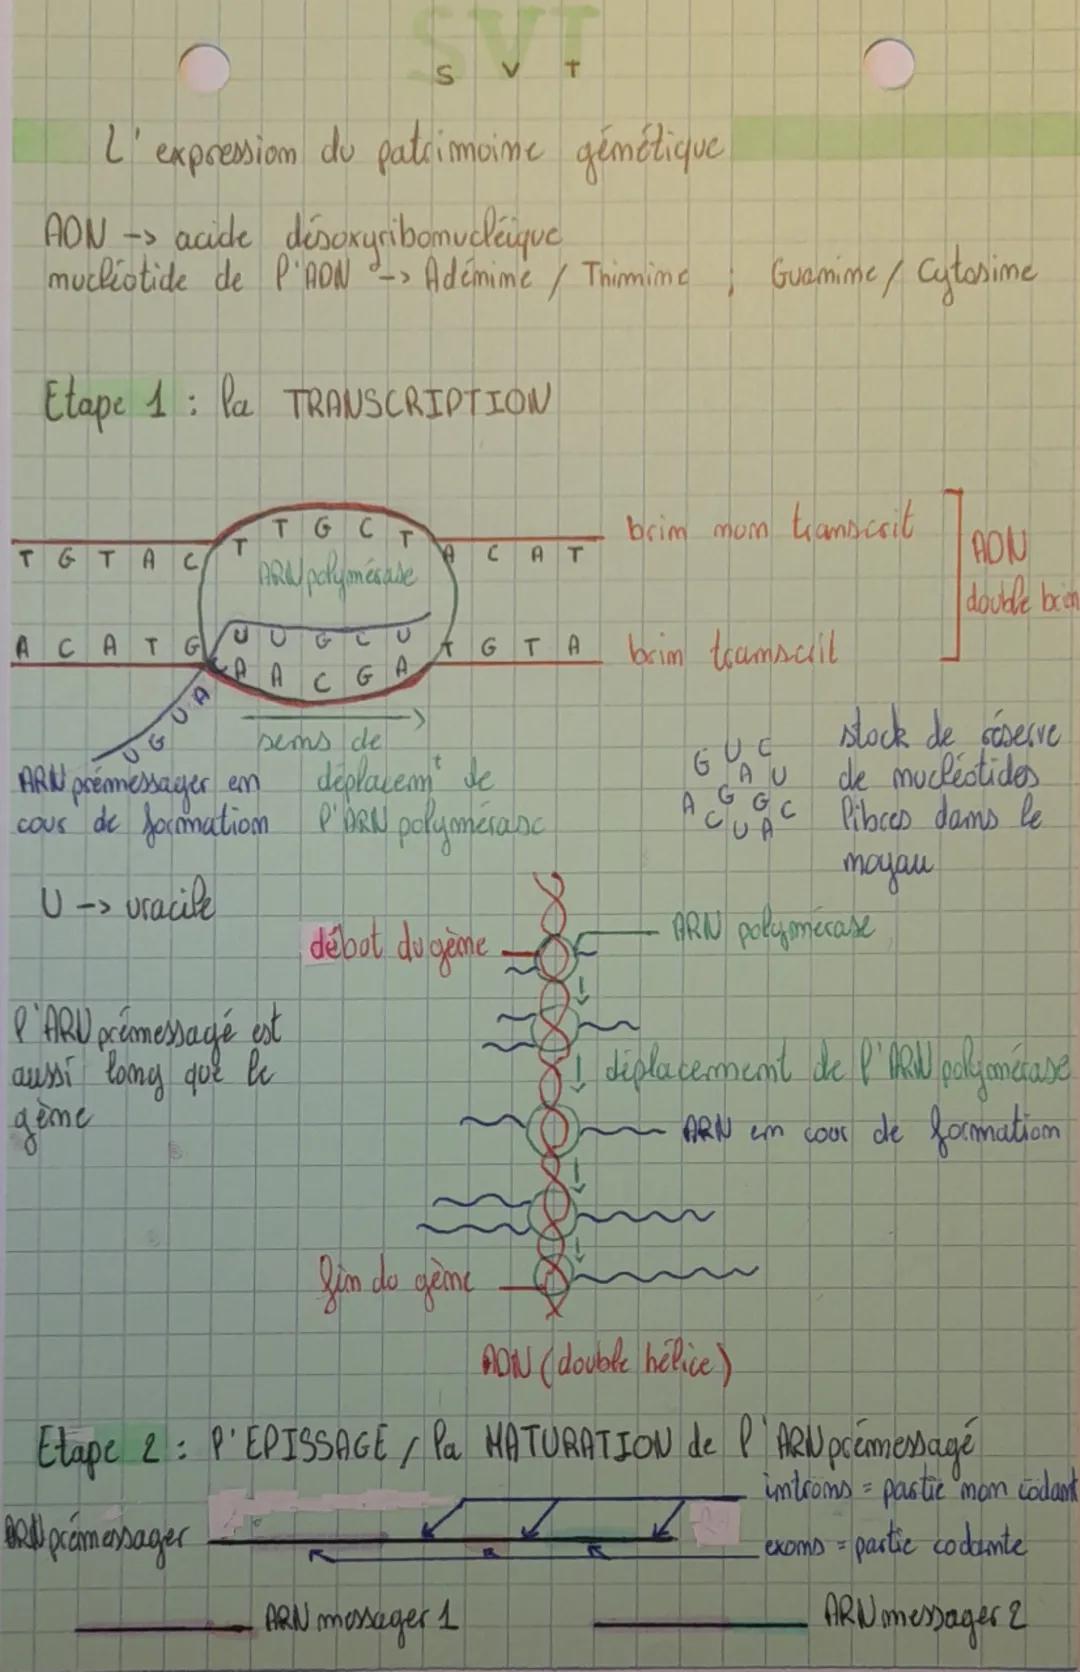 SVT
S V T
L'expression du patrimoine génétique
ADN -> acide désoxyribonucléique
nucléotide de l'ADN -> Adénine / Thimine ; Guanine / Cytosine
Etape 1 : la TRANSCRIPTION
T G T A C T T G C T A C A T
brin non transcrit
ARN polymérase
ADN
double brin
U U G C U
A C A T G A A C G A T G T A
brin transcrit
U G U A
sens de
déplacemt de
l'ARN polymérase
ARN prémessager en
cour de formation
G U C
A U
A G G C
C U A
stock de réserve
de nucléotides
libres dans le
noyau
U -> uracile
début du gène
ARN polymérase
l'ARN prémessagé est
aussi long que le
gène
déplacement de l'ARN polymérase
ARN en cour de formation
fin du gène
ADN (double hélice)
Etape 2 : l'EPISSAGE / la MATURATION de l'ARN prémessagé
introns = partie non codant
ARN prémessager
exons = partie codante
ARN messager 1
ARN messager 2